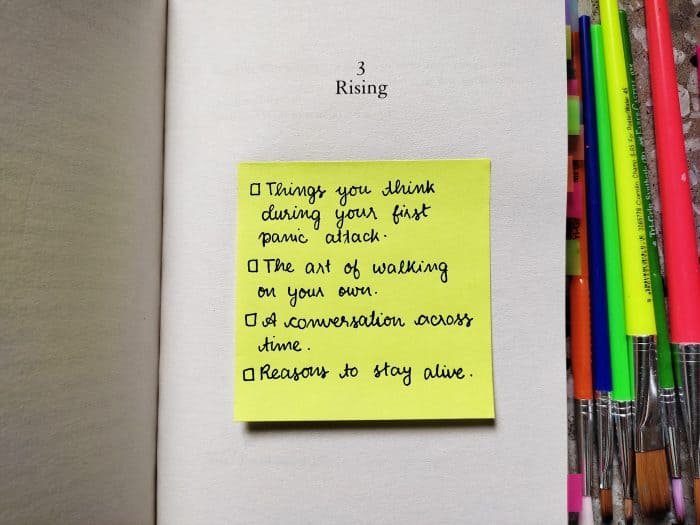 3
Rising
☐ Things you think
during your first
panic attack.
☐ The art of walking
on your own.
☐ A conversation across
time.
☐ Reasons to stay alive.